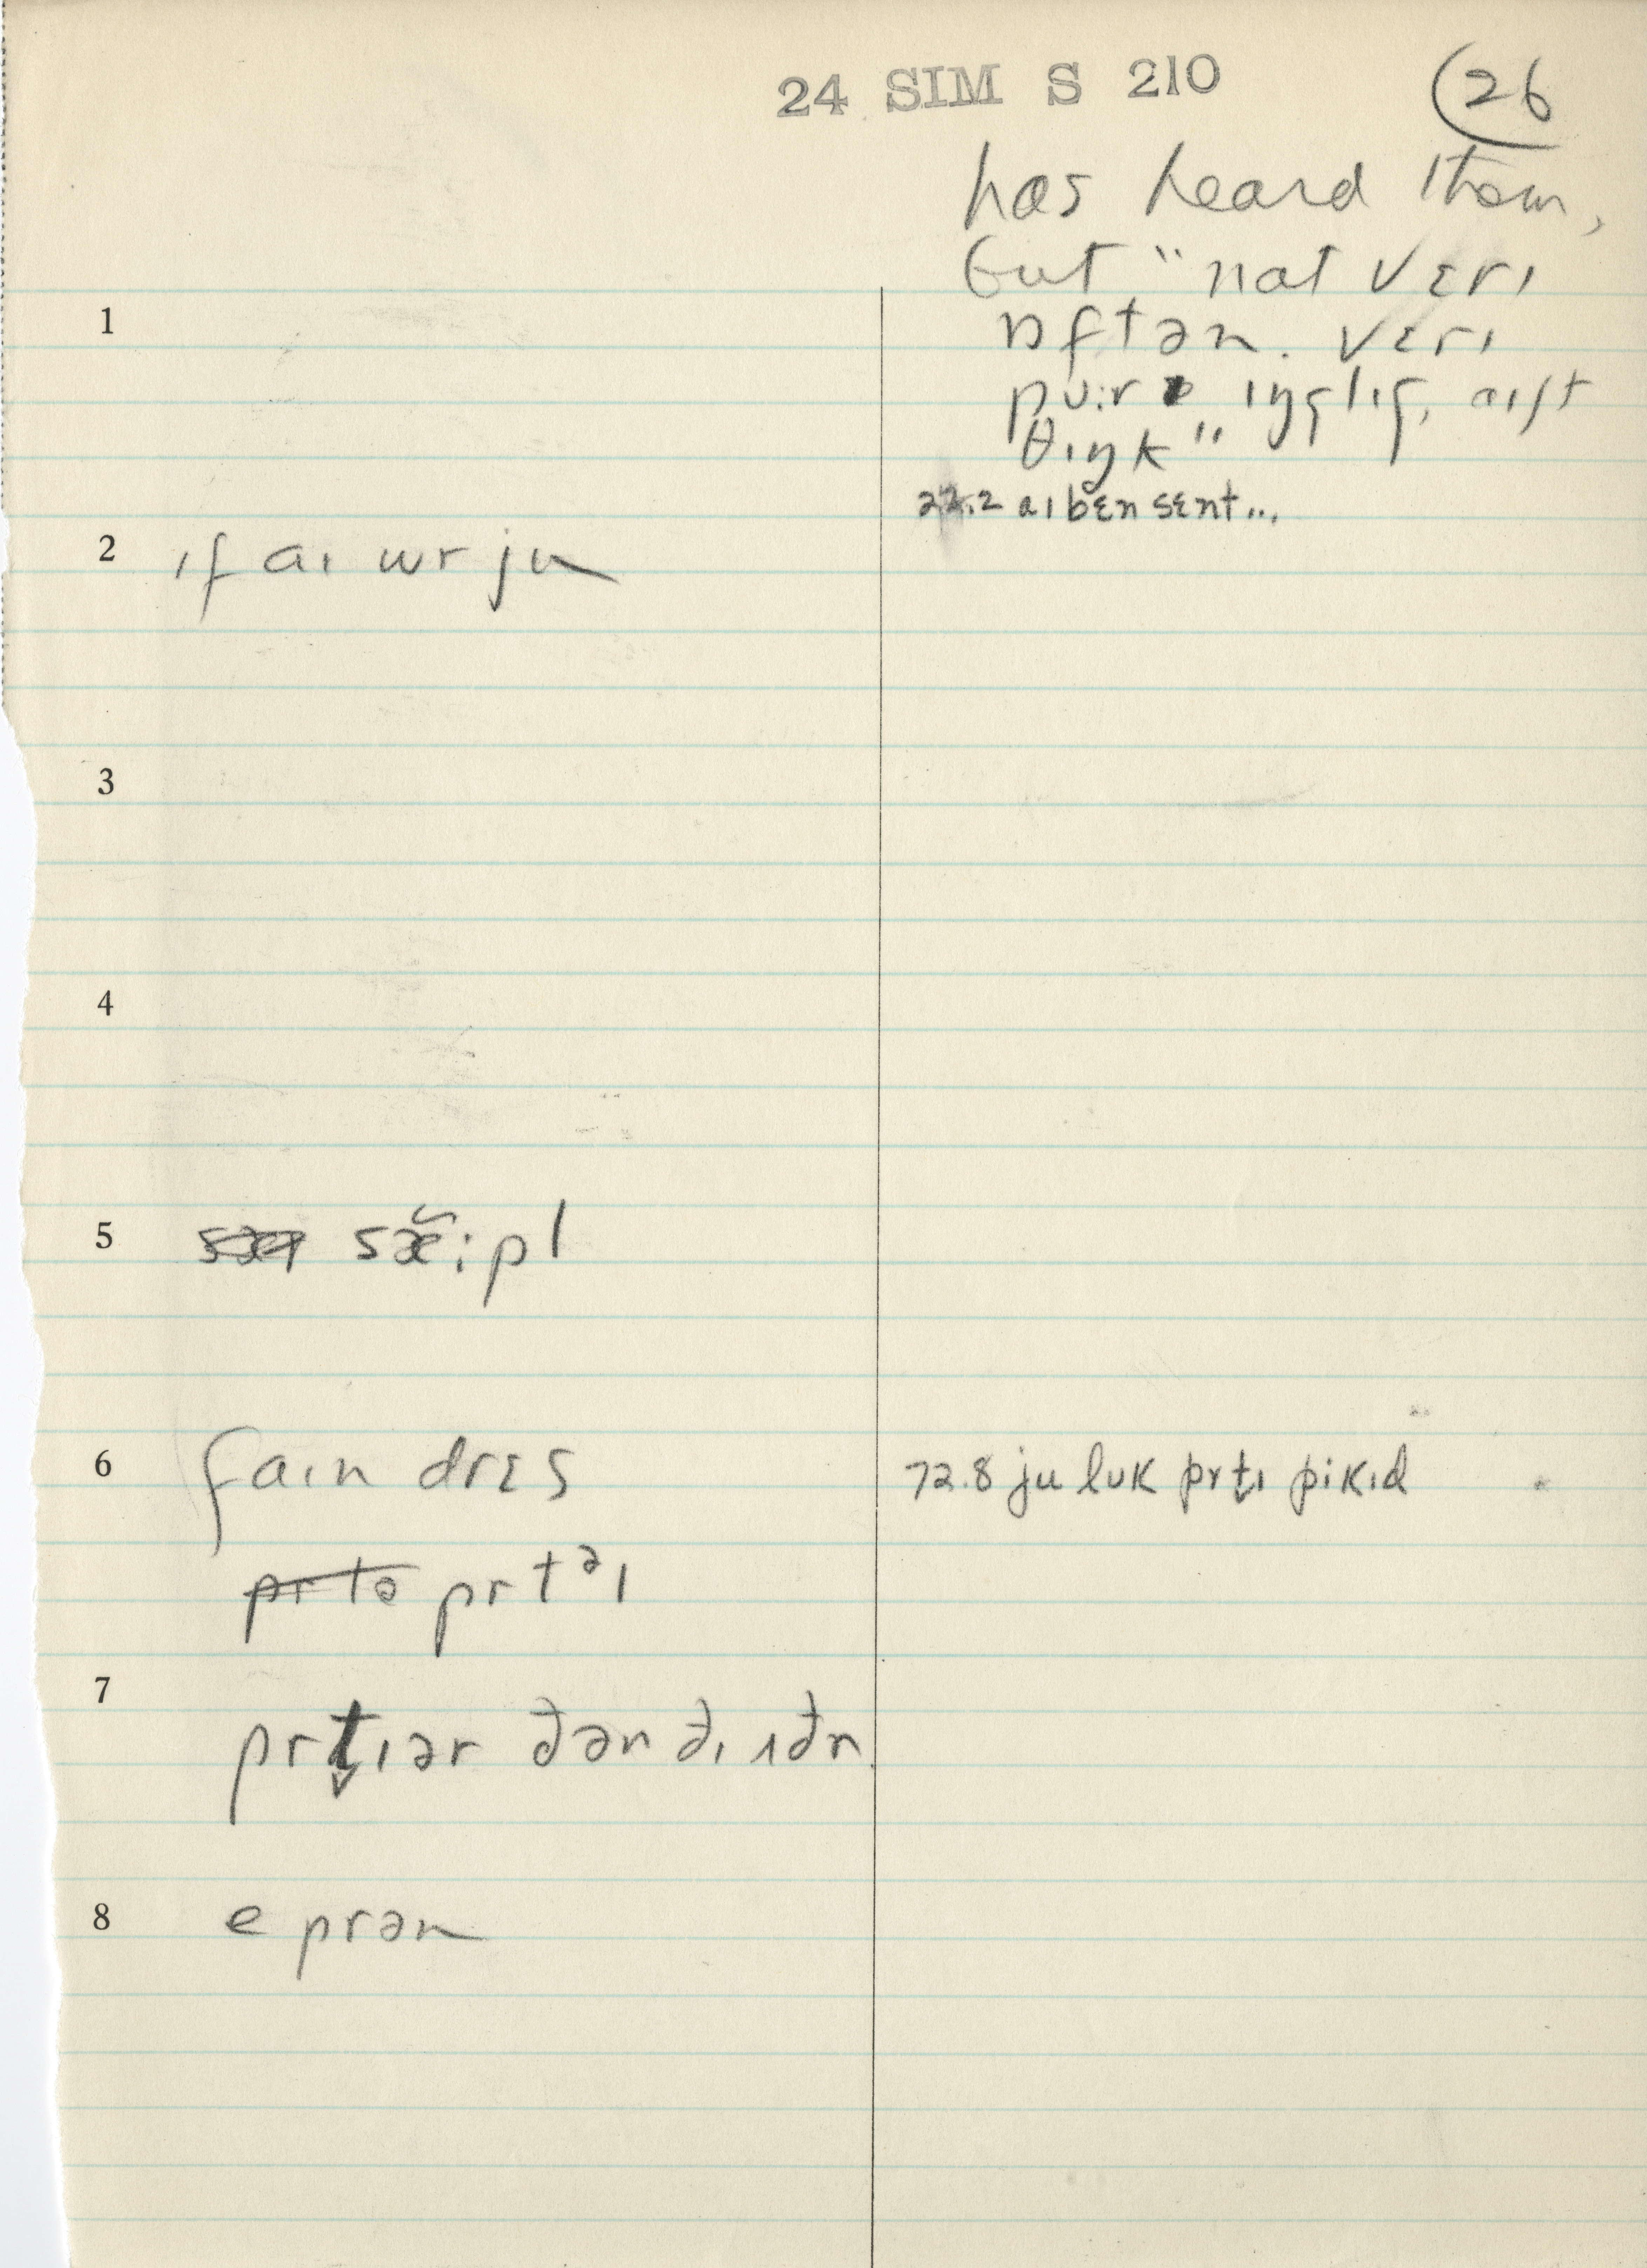 24 SIM S 210
26
has heard them,
but "nat vɛrɪ
ɒftən. vɛrɪ
pʊ:r ɪŋglɪʃ, aɪʃt
θɪŋk"
22.2 aɪ bɛn sɛnt...
1
2 ɪf aɪ wr ju
3
4
5 sæ̆:pl
6 faɪn drɛs
72.8 ju lʊk prt̬ɪ pikɪd
prtᵊɪ
7
prt̬ɪər ðən ðɪ ɪðr
8 e prən